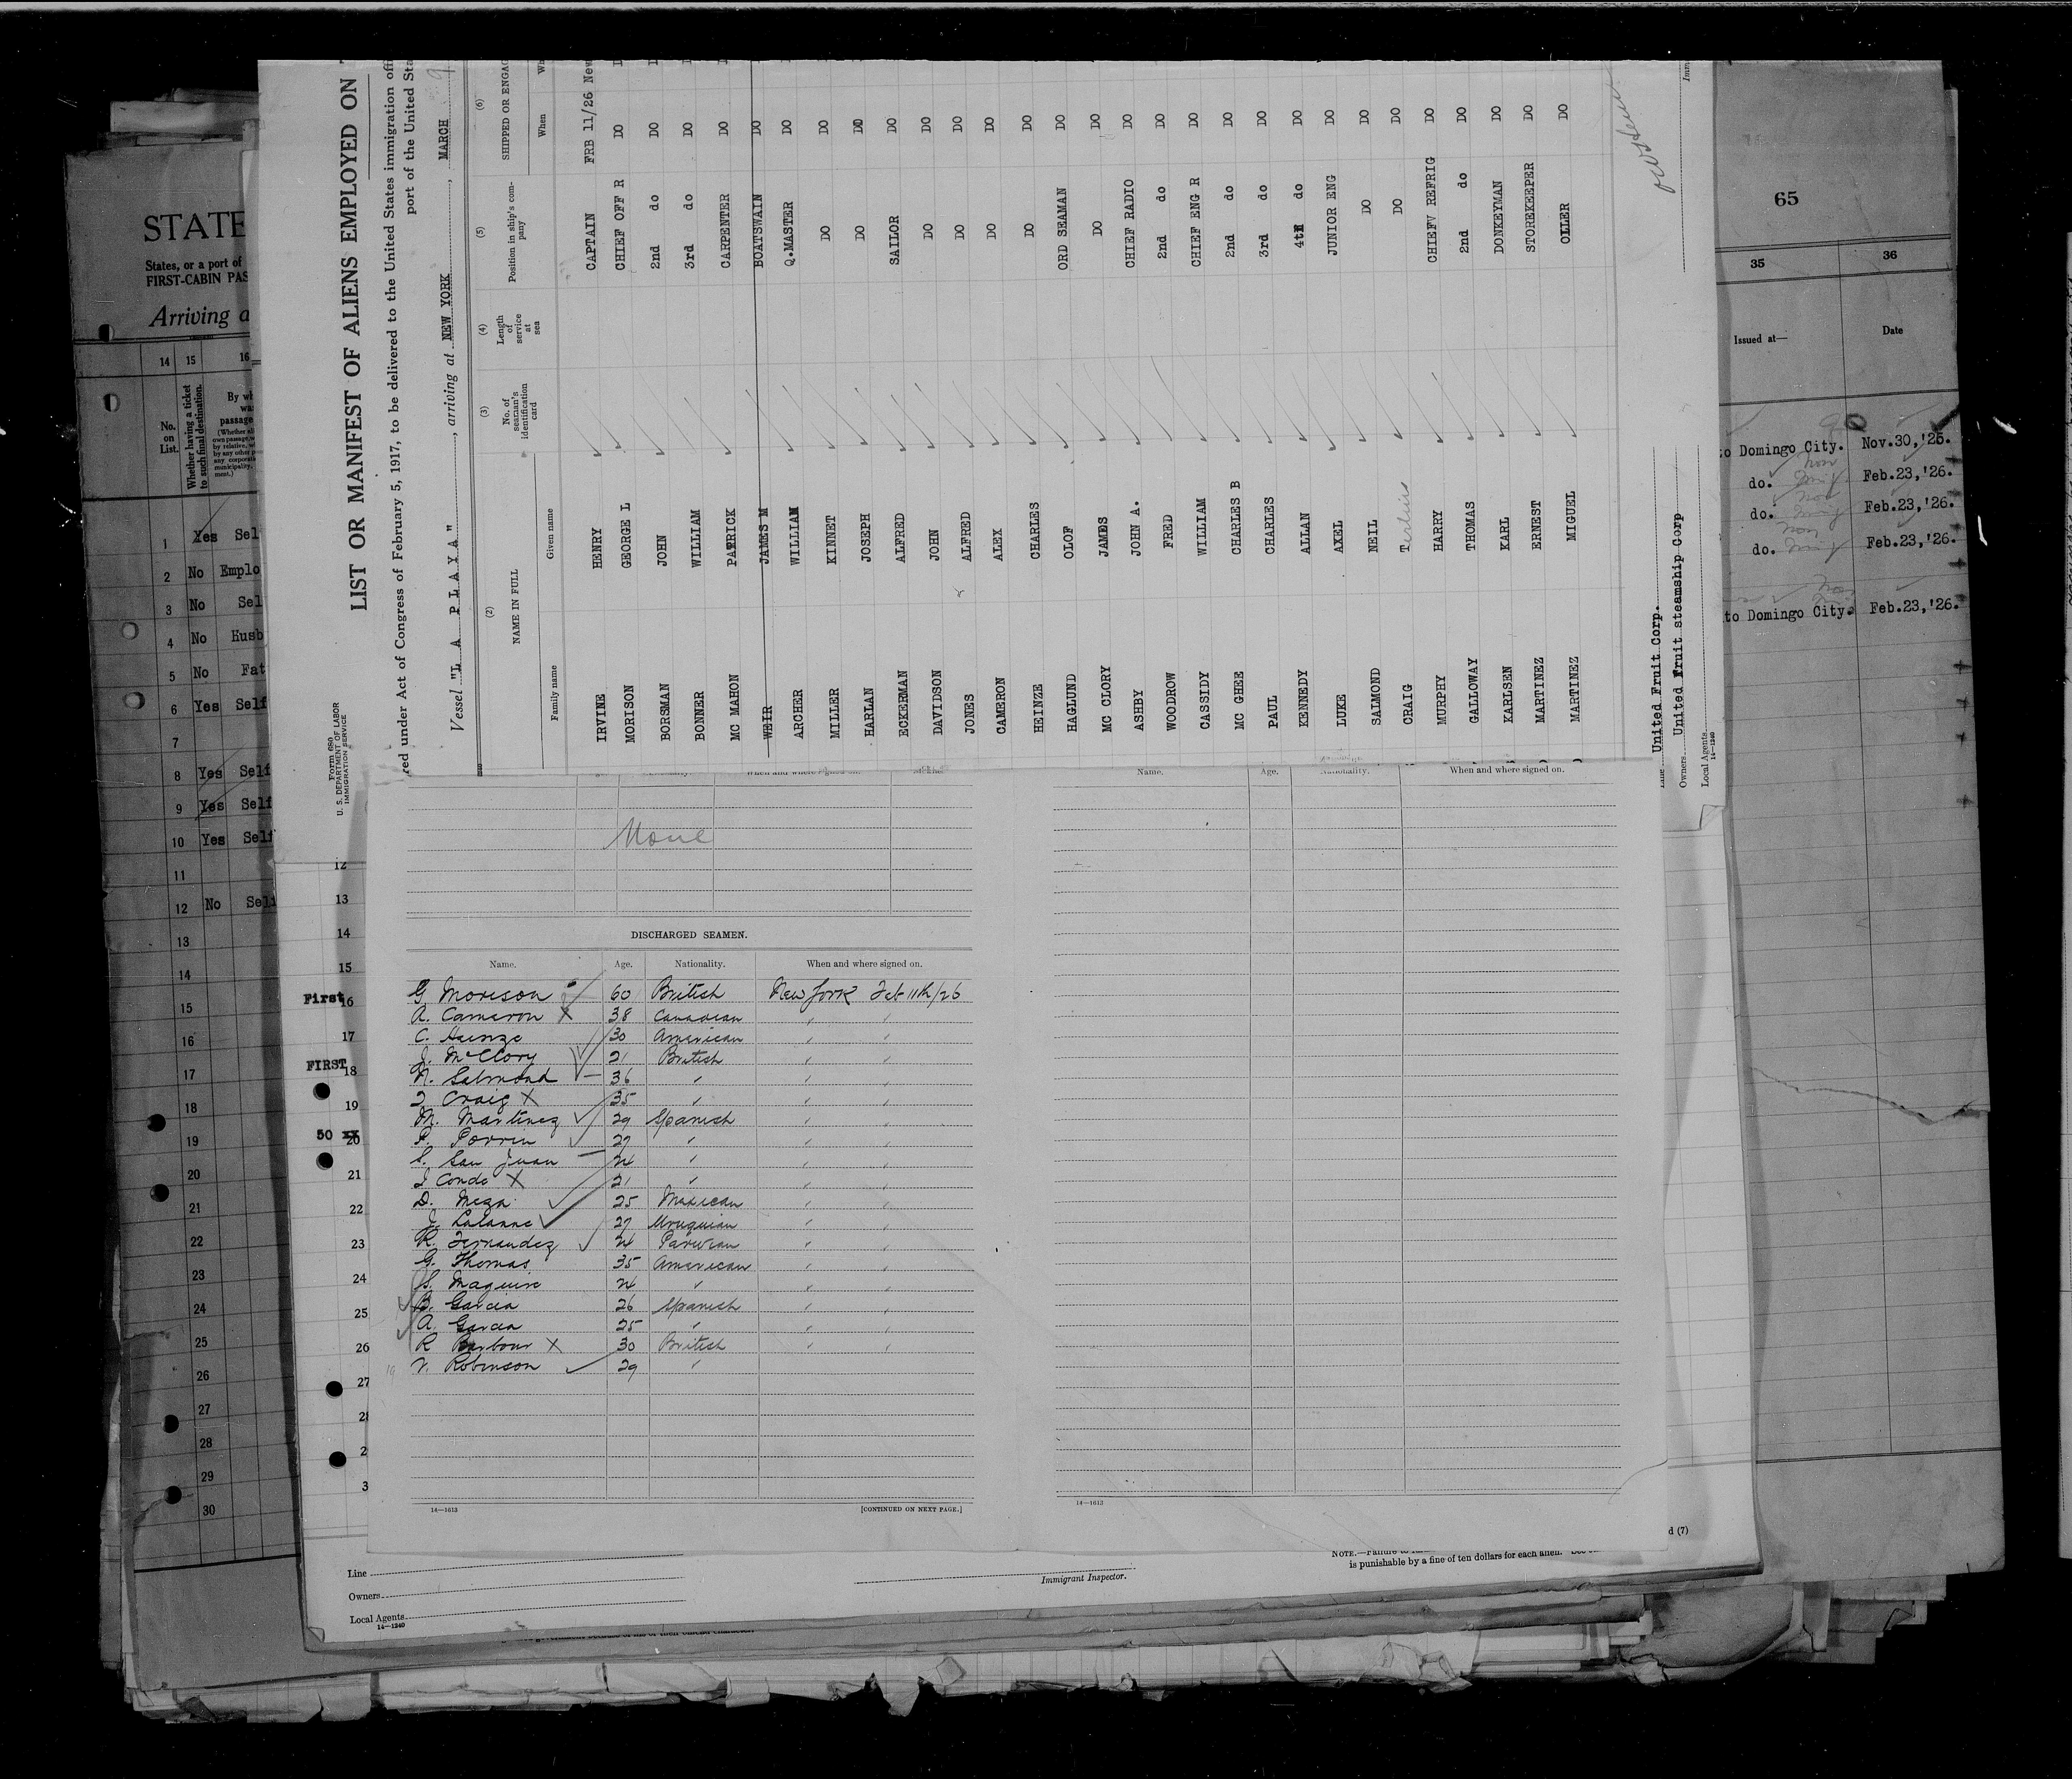 STATE
States, or a port of
FIRST-CABIN PAS
Arriving a
14 15 16
No. on List.
Whether having a ticket to such final destination.
1 Yes Sel
2 No Emplo
3 No Sel
4 No Husb
5 No Fat
6 Yes Self
7
8 Yes Self
9 Yes Self
10 Yes Self
11
12 No Sel
13
14
15
16
17
18
19
20
21
22
23
24
25
26
27
28
29
30
Form 680
U. S. DEPARTMENT OF LABOR
IMMIGRATION SERVICE
LIST OR MANIFEST OF ALIENS EMPLOYED ON
red under Act of Congress of February 5, 1917, to be delivered to the United States immigration offi
port of the United Sta
Vessel "L A P L A Y A", arriving at NEW YORK, MARCH 9
(2) (3) (4) (5) (6)
NAME IN FULL
No. of seaman's identification card
Length of service at sea
Position in ship's company
SHIPPED OR ENGAG
Family name Given name When Wh
IRVINE HENRY CAPTAIN FRB 11/26 New
MORISON GEORGE L CHIEF OFF R DO
BORSMAN JOHN 2nd do DO
BONNER WILLIAM 3rd do DO
MC MAHON PATRICK CARPENTER DO
WEIR JAMES M BOATSWAIN DO
ARCHER WILLIAM Q.MASTER DO
MILLER KINNET DO DO
HARLAN JOSEPH DO DO
ECKERMAN ALFRED SAILOR DO
DAVIDSON JOHN DO DO
JONES ALFRED DO DO
CAMERON ALEX DO DO
HEINZE CHARLES DO DO
HAGLUND OLOF ORD SEAMAN DO
MC CLORY JAMDS DO DO
ASHBY JOHN A. CHIEF RADIO DO
WOODROW FRED 2nd do DO
CASSIDY WILLIAM CHIEF ENG R DO
MC GHEE CHARLES B 2nd do DO
PAUL CHARLES 3rd do DO
KENNEDY ALLAN 4th do DO
LUKE AXEL JUNIOR ENG DO
SALMOND NEIL DO DO
CRAIG T DO DO
MURPHY HARRY CHIEFV REFRIG DO
GALLOWAY THOMAS 2nd do DO
KARLSEN KARL DONKEYMAN DO
MARTINEZ ERNEST STOREKEEPER DO
MARTINEZ MIGUEL OILER DO
United Fruit Corp.
Owners United Fruit steamship Corp
Local Agents
14—1240
65
35 36
Issued at— Date
to Domingo City. Nov.30,'25.
do. Feb.23,'26.
do. Feb.23,'26.
do. Feb.23,'26.
to Domingo City. Feb.23,'26.
Name. Age. Nationality. When and where signed on.
None
DISCHARGED SEAMEN.
Name. Age. Nationality. When and where signed on.
G Morison 60 British New York Feb 11th/26
A. Cameron X 38 Canadian " "
C. Heinze 30 American " "
J. McClory 21 British " "
N. Salmond 36 " " "
T Craig X 35 " " "
M. Martinez 29 Spanish " "
P. Porrin 27 " " "
S. San Juan 24 " " "
J Conde X 21 " " "
D. Meza 25 Mexican " "
J. Lalanne 27 Uruguian " "
R. Fernandez 24 Peruvian " "
G. Thomas 35 American " "
S. Maguire 24 " " "
B. Garcia 26 Spanish " "
A. Garcia 25 " " "
R Barbour X 30 British " "
V. Robinson 29 "
14—1613 [CONTINUED ON NEXT PAGE.]
14—1613
12
13
14
15
First 16
17
FIRST 18
19
50 xx 20
21
22
23
24
25
26
27
Line
Owners
Local Agents
14—1240
Immigrant Inspector.
d (7)
is punishable by a fine of ten dollars for each alien.